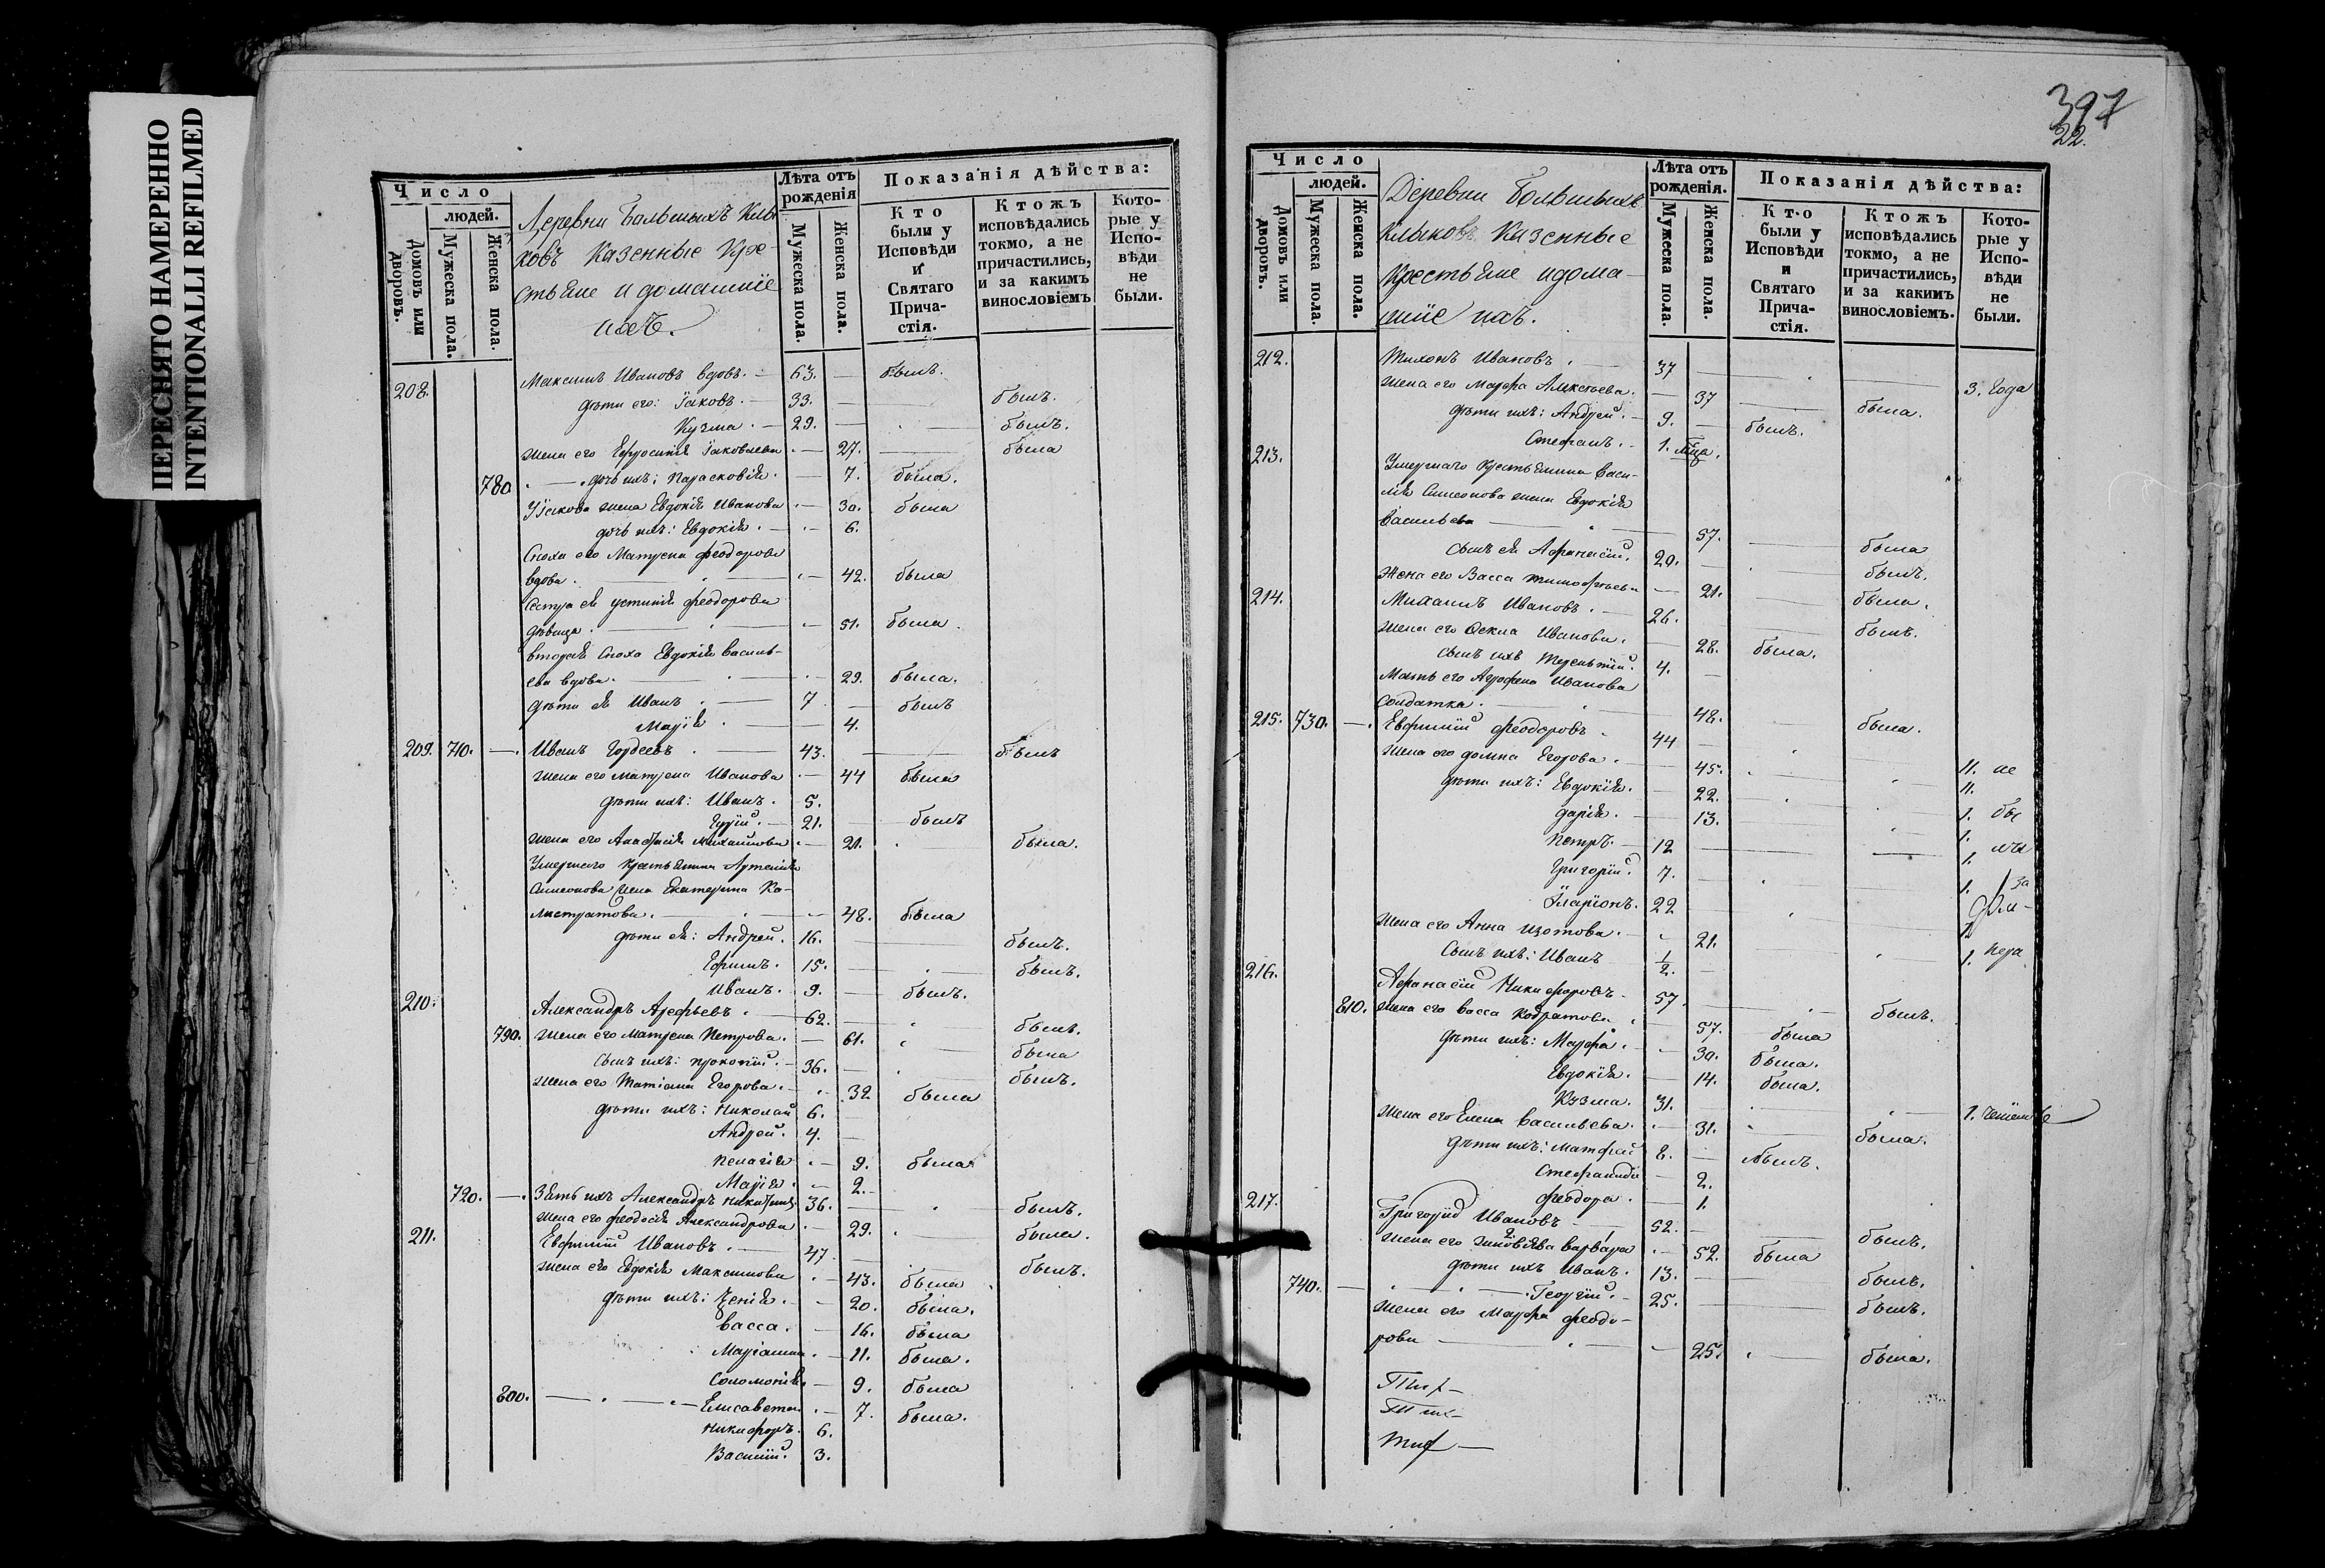 ПЕРЕСНЯТО НАМЕРЕННО
INTENTIONALLI REFILMED
Число
людей.
Домовъ или дворовъ.
Мужеска пола.
Женска пола.
Деревни Большихъ Клы-
ковъ Казенные Кре-
стьяне и домашніе
ихъ.
Лѣта отъ рожденія
Мужеска пола.
Женска пола.
Показанія дѣйства:
Кто были у Исповѣди и Святаго Причастія.
Ктожъ исповѣдались токмо, а не причастились, и за какимъ винословіемъ
Которые у Исповѣди не были.
208. Максимъ Ивановъ вдовъ. — 63. — былъ.
дѣти его: Іаковъ. — 33. — былъ.
Кузма. — 29. — былъ.
жена его Ефросинія Іаковлева — 27. — была
780 дочь ихъ: Парасковія. — 7. была.
У Іакова жена Евдокія Иванова — 30. была
дочь ихъ: Евдокія. — 6.
Сноха его Матрена Феодорова
вдова. — 42. была
Сестра ея Устинія Феодорова
дѣвица. — 51. была.
вторая Сноха Евдокія Василь-
ева вдова. — 29. была.
дѣти ея Иванъ. — 7 — былъ
Марія. — 4.
209. 710. — Иванъ Гордеевъ. — 43. — былъ
жена его Матрена Иванова — 44 была
дѣти ихъ: Иванъ. 5.
Гурій. — 21. — былъ
жена его Анастасія Михаилова — 21. — была.
Умершаго крестьянина Артемія
Симеонова жена Екатерина Ка-
листратова. — 48. была
дѣти ея: Андрей. 16. былъ.
Ефимъ. 15. — былъ.
Иванъ. 9. — былъ.
210. Александръ Арефьевъ. — 62. — былъ.
790. жена его Матрена Петрова. — 61. — была
сынъ ихъ: Прокопій. — 36. — былъ.
жена его Татіана Егорова. — 32 была
дѣти ихъ: Николай 6. —
Андрей. 4. —
Пелагія — 9. была
Марія. — 2. —
720. — Зять ихъ Александръ Никитинъ 36. — былъ.
жена его Феодосія Александрова — 29. — была.
211. Евфимій Ивановъ. — 47 — былъ.
жена его Евдокія Максимова — 43. была
дѣти ихъ: — 20. была.
Васса. — 16. была
Маріамна. — 11. была.
Соломонія. — 9. была
800. — Елисавета. — 7. была.
Никифоръ. 6.
Василій. 3.
397
22.
Число
людей.
Домовъ или дворовъ.
Мужеска пола.
Женска пола.
Деревни Большихъ
Клыковъ Казенные
Крестьяне и дома-
шніе ихъ.
Лѣта отъ рожденія.
Мужеска пола.
Женска пола.
Показанія дѣйства:
Кто были у Исповѣди и Святаго Причастія.
Ктожъ исповѣдались токмо, а не причастились, и за какимъ винословіемъ.
Которые у Исповѣди не были.
212. Тихонъ Ивановъ. — 37 — 3. года
жена его Марфа Алексѣева. — 37 — была.
дѣти ихъ: Андрей. — 9. — былъ.
Стефанъ. — 1. мца.
213. Умершаго крестьянина Васи-
лія Симеонова жена Евдокія
Васильева — 57. — была
сынъ ея Афанасій. 20. — былъ.
Жена его Васса Тимофѣева — 21. — была.
214. Михаилъ Ивановъ. — 26. — былъ.
жена его Ѳекла Иванова. — 28. была.
сынъ ихъ Терентій. 4. —
Мать его Агрофена Иванова
солдатка. — 48. — была.
215. 730. — Евфимій Феодоровъ. 44 — 11. не
жена его Домна Егорова. — 45. — 11.
дѣти ихъ: Евдокія. — 22. — 1. бы
Дарія. — 13. — 1.
Петръ. — 12 — 1. лъ
Григорій. 7. — 1. за
Иларіонъ. 22
жена его Анна Изотова. — 21. — 1.
Сынъ ихъ: Иванъ 1/2.
216. Афанасій Никифоровъ. 57. — былъ.
810. жена его Васса Кодратова. — 57. была
дѣти ихъ: Марфа. — 30. была.
Евдокія. — 14. была.
Кузма. 31. — 1.
жена его Елена Васильева. — 31. — была.
дѣти ихъ: Матфей 8. — былъ.
Стефанида — 2.
Феодора. — 1.
217. Григорій Ивановъ — 52. — былъ.
жена его Зиновіева Варвара — 52. была
дѣти ихъ Иванъ. 13. — былъ.
740. — Георгій. — 25. — былъ.
жена его Марфа Феодо-
рова — 25. — была.